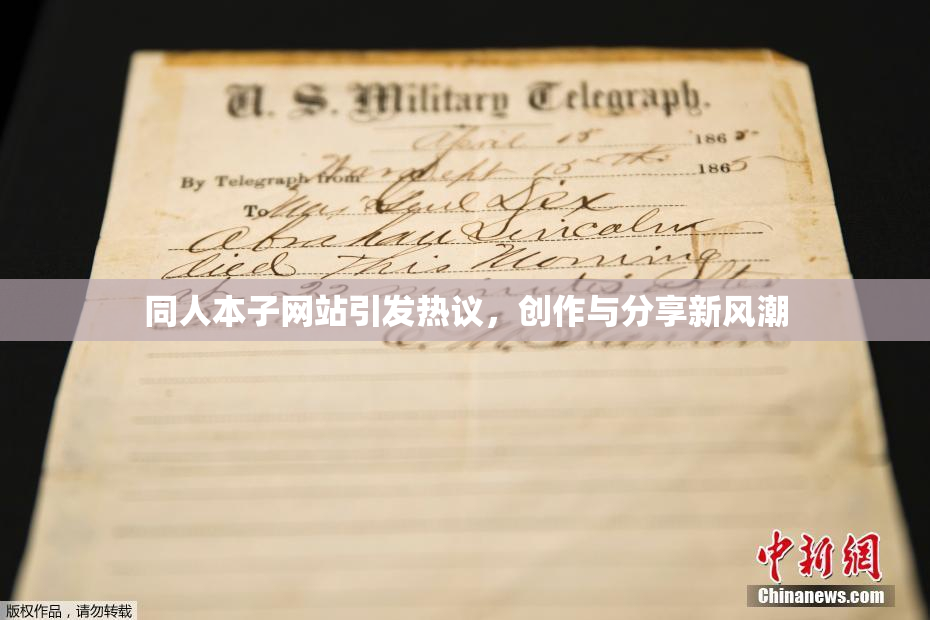 U. S. Military Telegraph.
April 15 1865
By Telegraph from War Dept 15th 1865
To Maj Genl Dix
Abraham Lincoln
died This Morning
22 minutes after
同人本子网站引发热议，创作与分享新风潮
中新網
Chinanews.com
版权作品，请勿转载